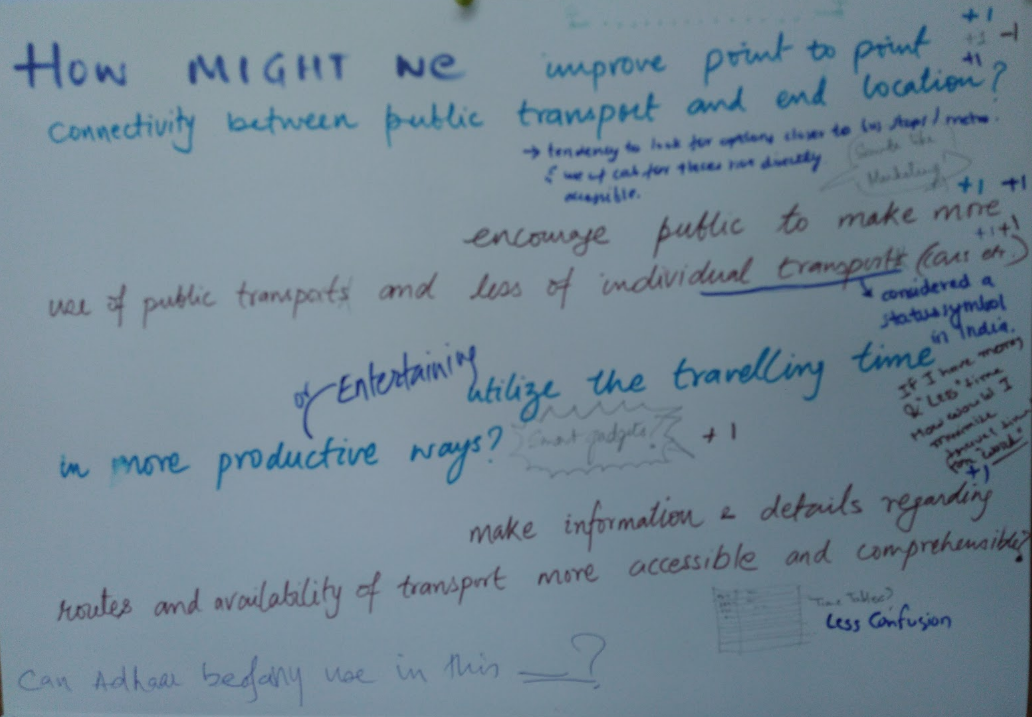 How MIGHT We improve point to point
+1
+1 -1
+1
connectivity between public transport and end location?
→ tendency to look for options closer to bus stops / metro.
& use of cab for places not directly
accessible.
Marketing
+1 +1
encourage public to make more
+1 +1
use of public transports and less of individual transports (cars etc.)
considered a
status symbol
in India.
or Entertaining
utilize the travelling time
in more productive ways?
Smart gadgets?
+1
If I have money
& "Less" time
How would I
travel time
for "work"
+1
make information & details regarding
routes and availability of transport more accessible and comprehensible?
Time Tables?
Less Confusion
Can Adhaar be of any use in this __?